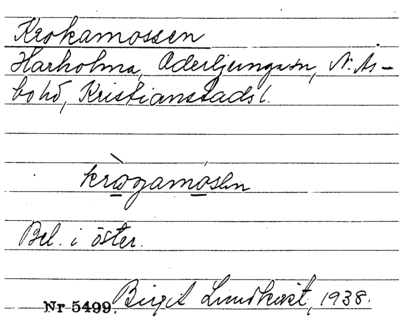 Krokamossen
Harholma, Oderljunga sn, N. Ås-
bo hd, Kristianstads l.
krògamòsen
Bel. i öster.
Nr 5499. Birgit Lundkvist, 1938.